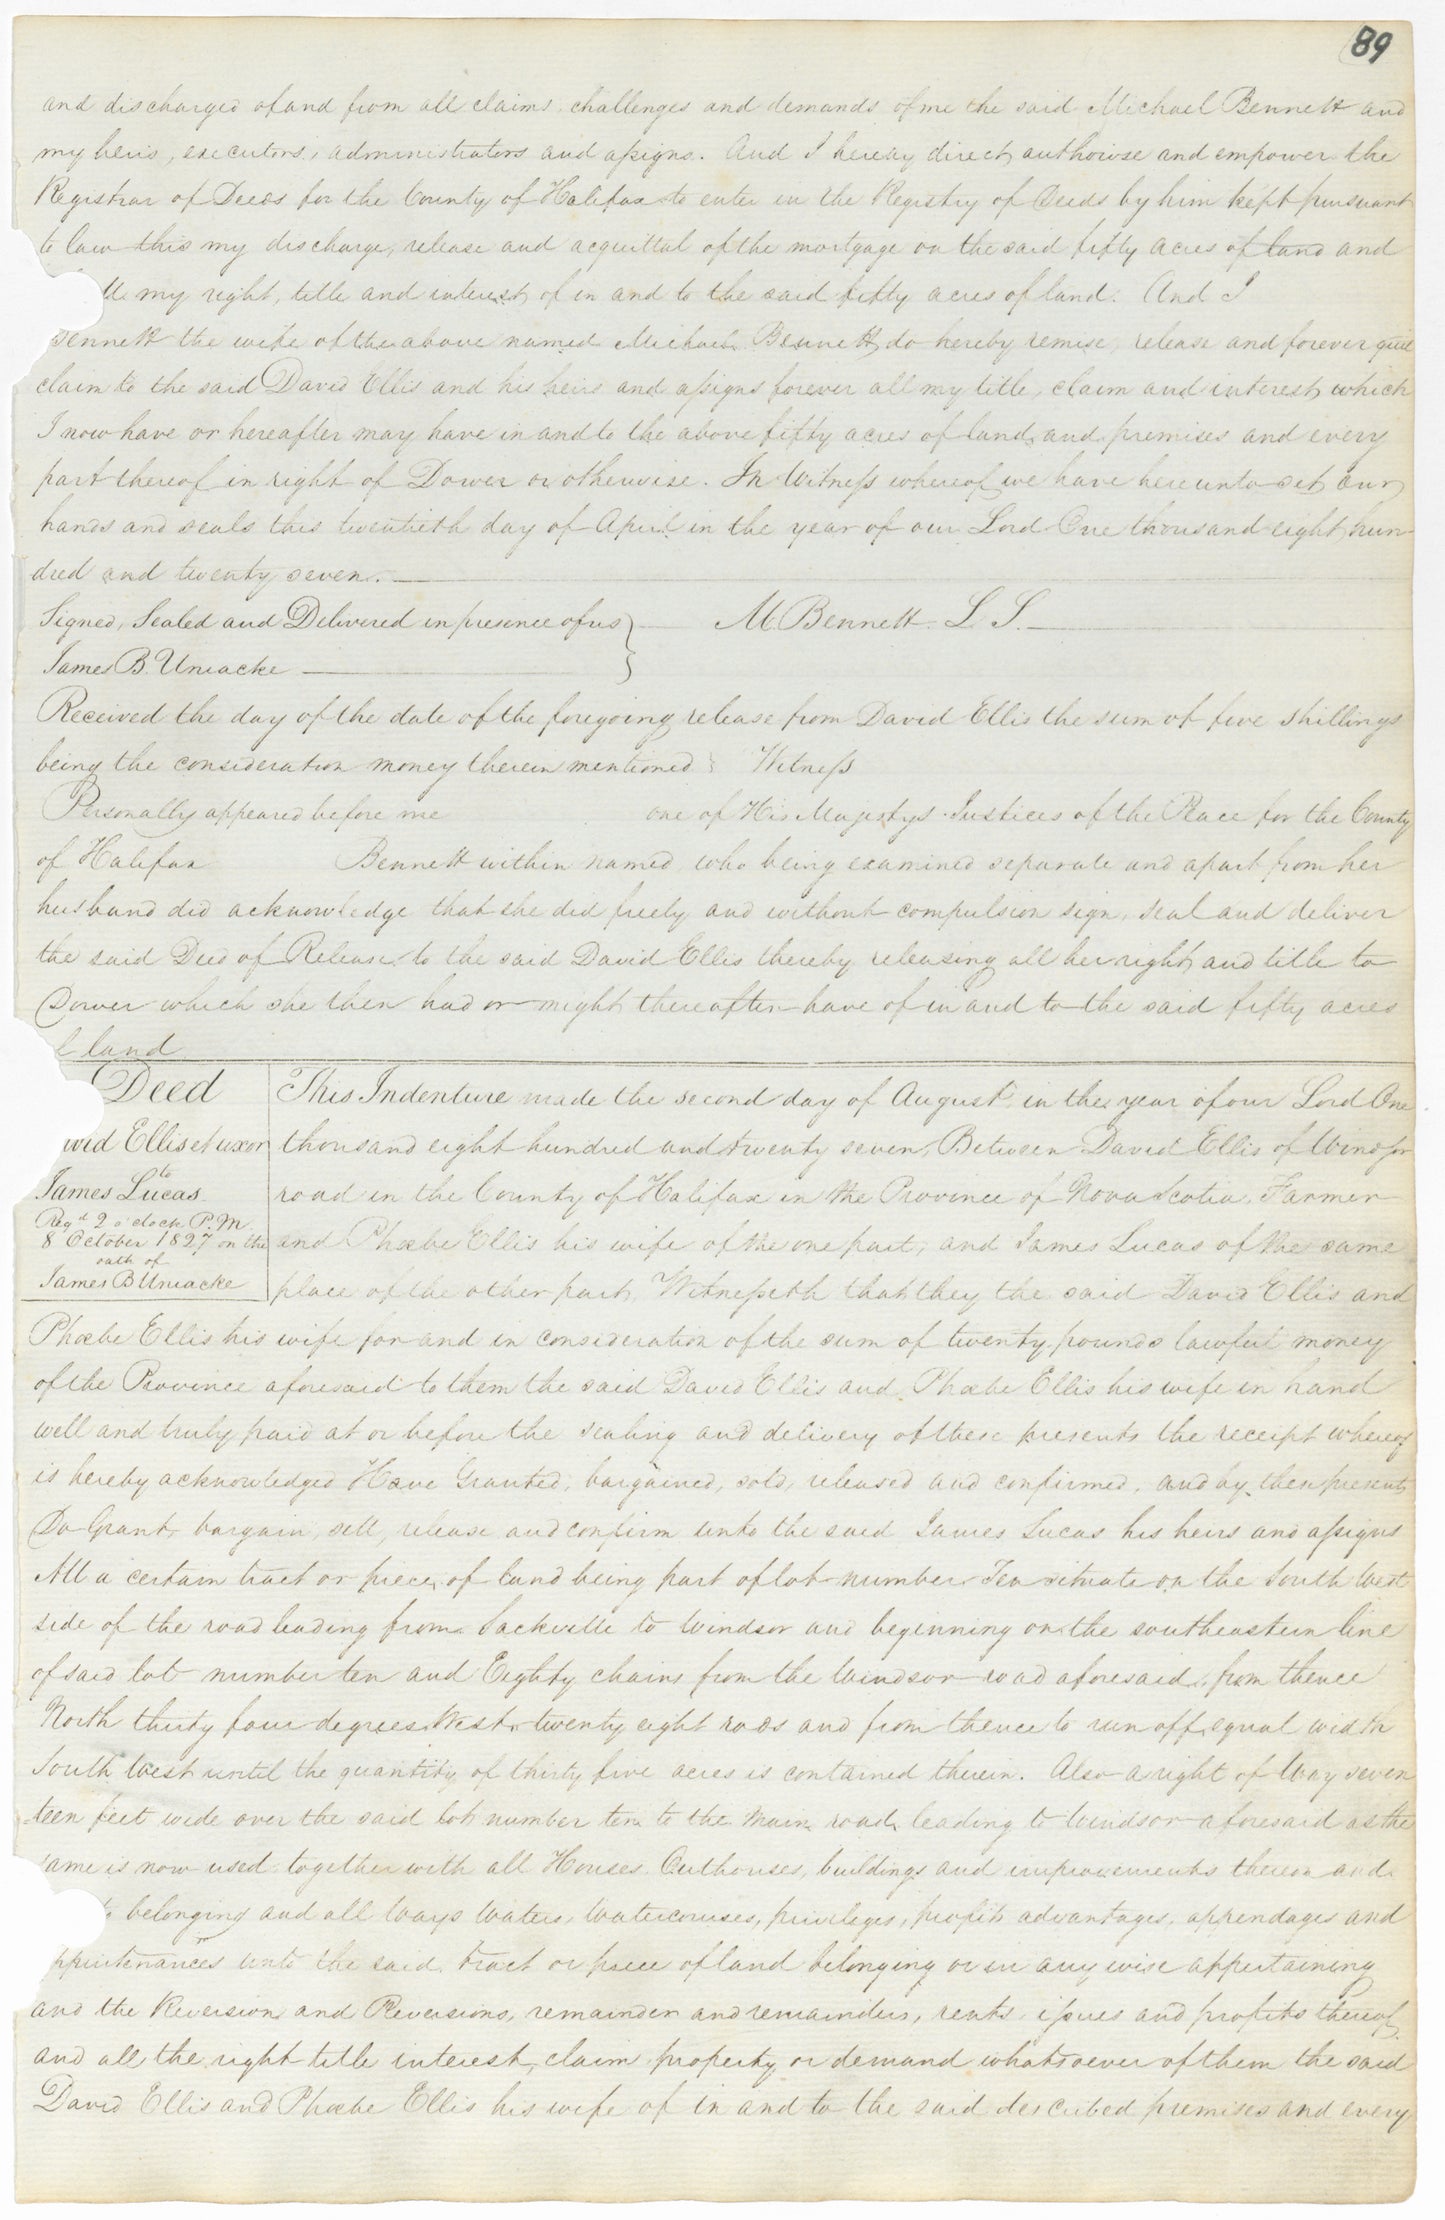 89
and discharged of and from all claims challenges and demands of me the said Michael Bennett and
my heirs, executors, administrators and assigns. And I hereby direct authorise and empower the
Registrar of Deeds for the County of Halifax to enter in the Registry of Deeds by him kept pursuant
to law this my discharge, release and acquittal of the mortgage on the said fifty acres of land and
ll my right, title and interest of in and to the said fifty acres of land. And I
Bennett the wife of the above named Michael Bennett do hereby remise, release and forever quit
claim to the said David Ellis and his heirs and assigns forever all my title, claim and interest which
I now have or hereafter may have in and to the above fifty acres of land and premises and every
part thereof in right of Dower or otherwise. In Witness whereof we have hereunto set our
hands and seals this twentieth day of April in the year of our Lord One thousand eight hun-
dred and twenty seven.
Signed, Sealed and Delivered in presence of us } M Bennett L. S.
James B. Uniacke
Received the day of the date of the foregoing release from David Ellis the sum of five shillings
being the consideration money therein mentioned } Witness
Personally appeared before me one of His Majestys Justices of the Peace for the County
of Halifax Bennett within named, who being examined separate and apart from her
husband did acknowledge that she did freely and without compulsion sign, seal and deliver
the said Deed of Release to the said David Ellis thereby releasing all her right and title to
Dower which she then had or might thereafter have of in and to the said fifty acres
f land
Deed
avid Ellis et uxor
to
James Lucas
Regd 2 o'clock P.M.
8 October 1827 on the
oath of
James B Uniacke
This Indenture made the second day of August in the year of our Lord One
thousand eight hundred and twenty seven, Between David Ellis of Windsor
road in the County of Halifax in the Province of Nova Scotia, Farmer
and Phœbe Ellis his wife of the one part, and James Lucas of the same
place of the other part, Witnesseth that they the said David Ellis and
Phœbe Ellis his wife for and in consideration of the sum of twenty pounds lawful money
of the Province aforesaid to them the said David Ellis and Phœbe Ellis his wife in hand
well and truly paid at or before the sealing and delivery of these presents the receipt whereof
is hereby acknowledged Have Granted, bargained, sold, released and confirmed, and by these presents
Do Grant, bargain, sell, release and confirm unto the said James Lucas his heirs and assigns
All a certain tract or piece of land being part of lot number Ten situate on the South West
side of the road leading from Sackville to Windsor and beginning on the southeastern line
of said lot number ten and Eighty chains from the Windsor road aforesaid, from thence
North thirty four degrees West twenty eight rods and from thence to run off equal width
South West until the quantity of thirty five acres is contained therein. Also a right of Way seven
teen feet wide over the said lot number ten to the main road leading to Windsor aforesaid as the
same is now used together with all Houses Outhouses, buildings and improvements thereon and
to belonging and all Ways Waters, Watercourses, privileges, profits advantages, appendages and
ppurtenances unto the said tract or piece of land belonging or in any wise appertaining
and the Reversion and Reversions, remainder and remainders, rents, issues and profits thereof
and all the right title interest, claim property or demand whatsoever of them the said
David Ellis and Phœbe Ellis his wife of in and to the said described premises and every